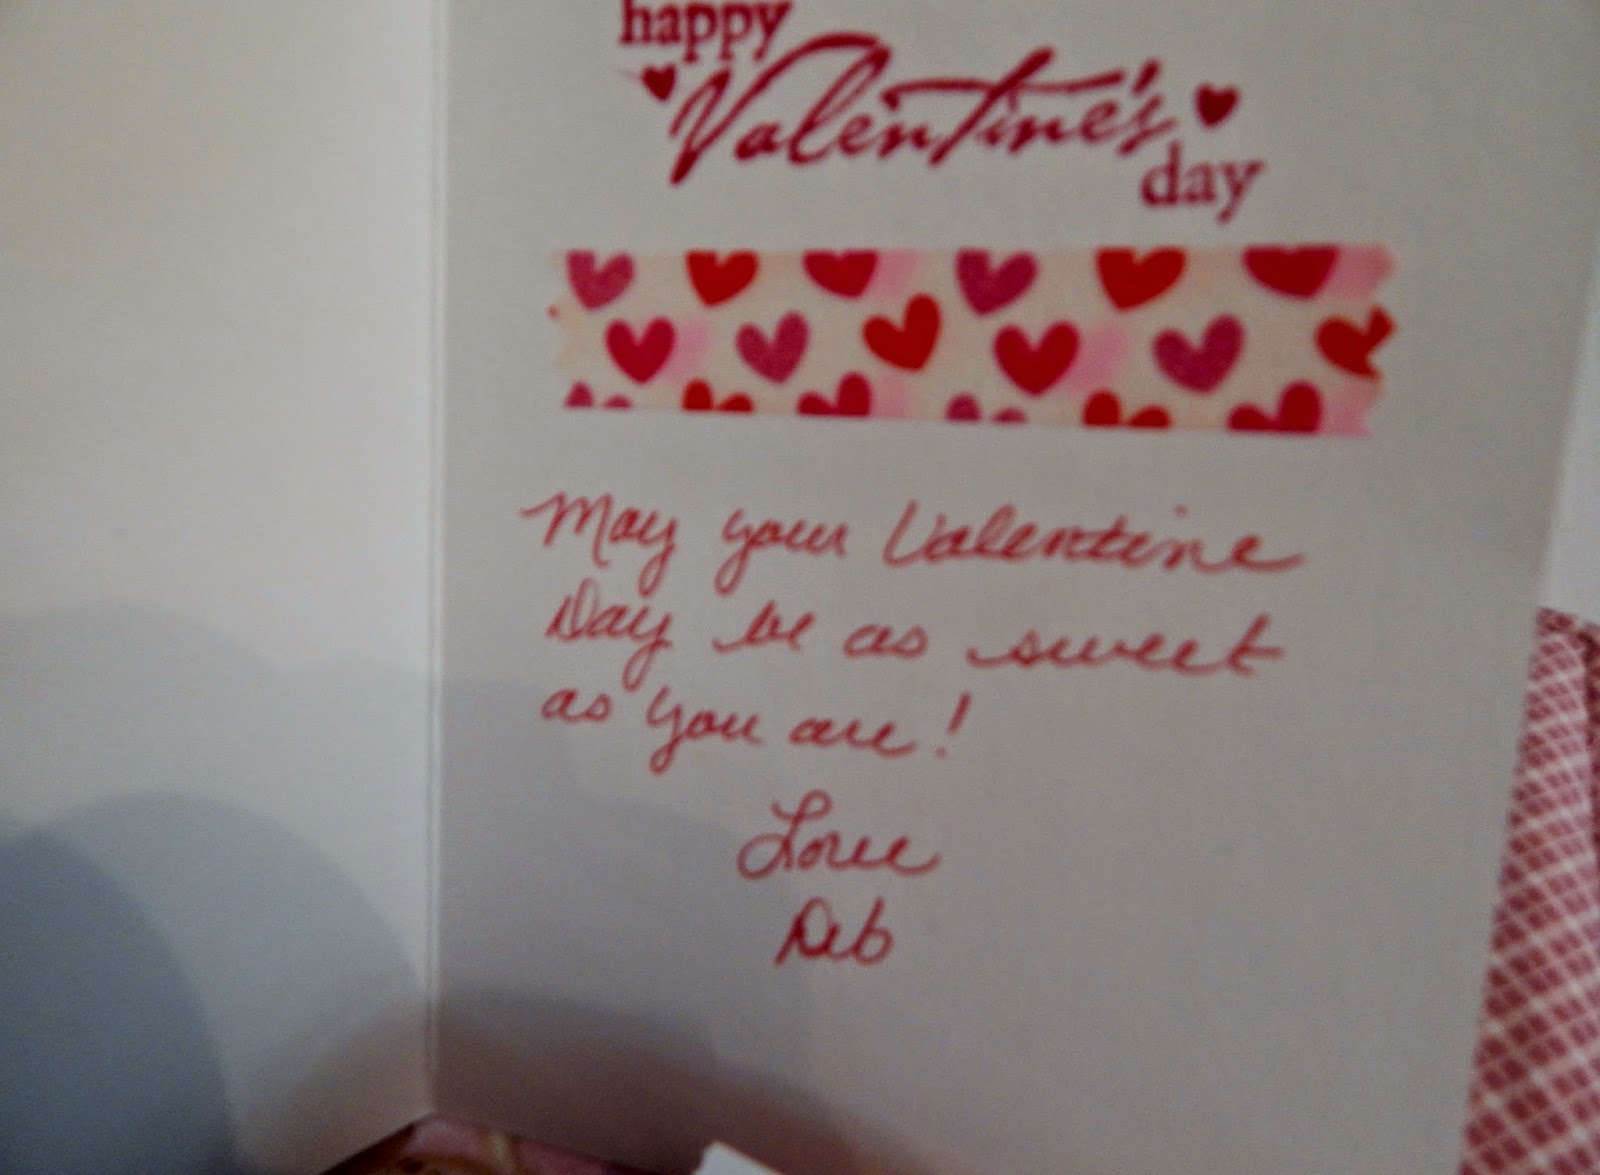 happy
Valentine's
day
May your Valentine
Day be as sweet
as you are!
Love
Deb